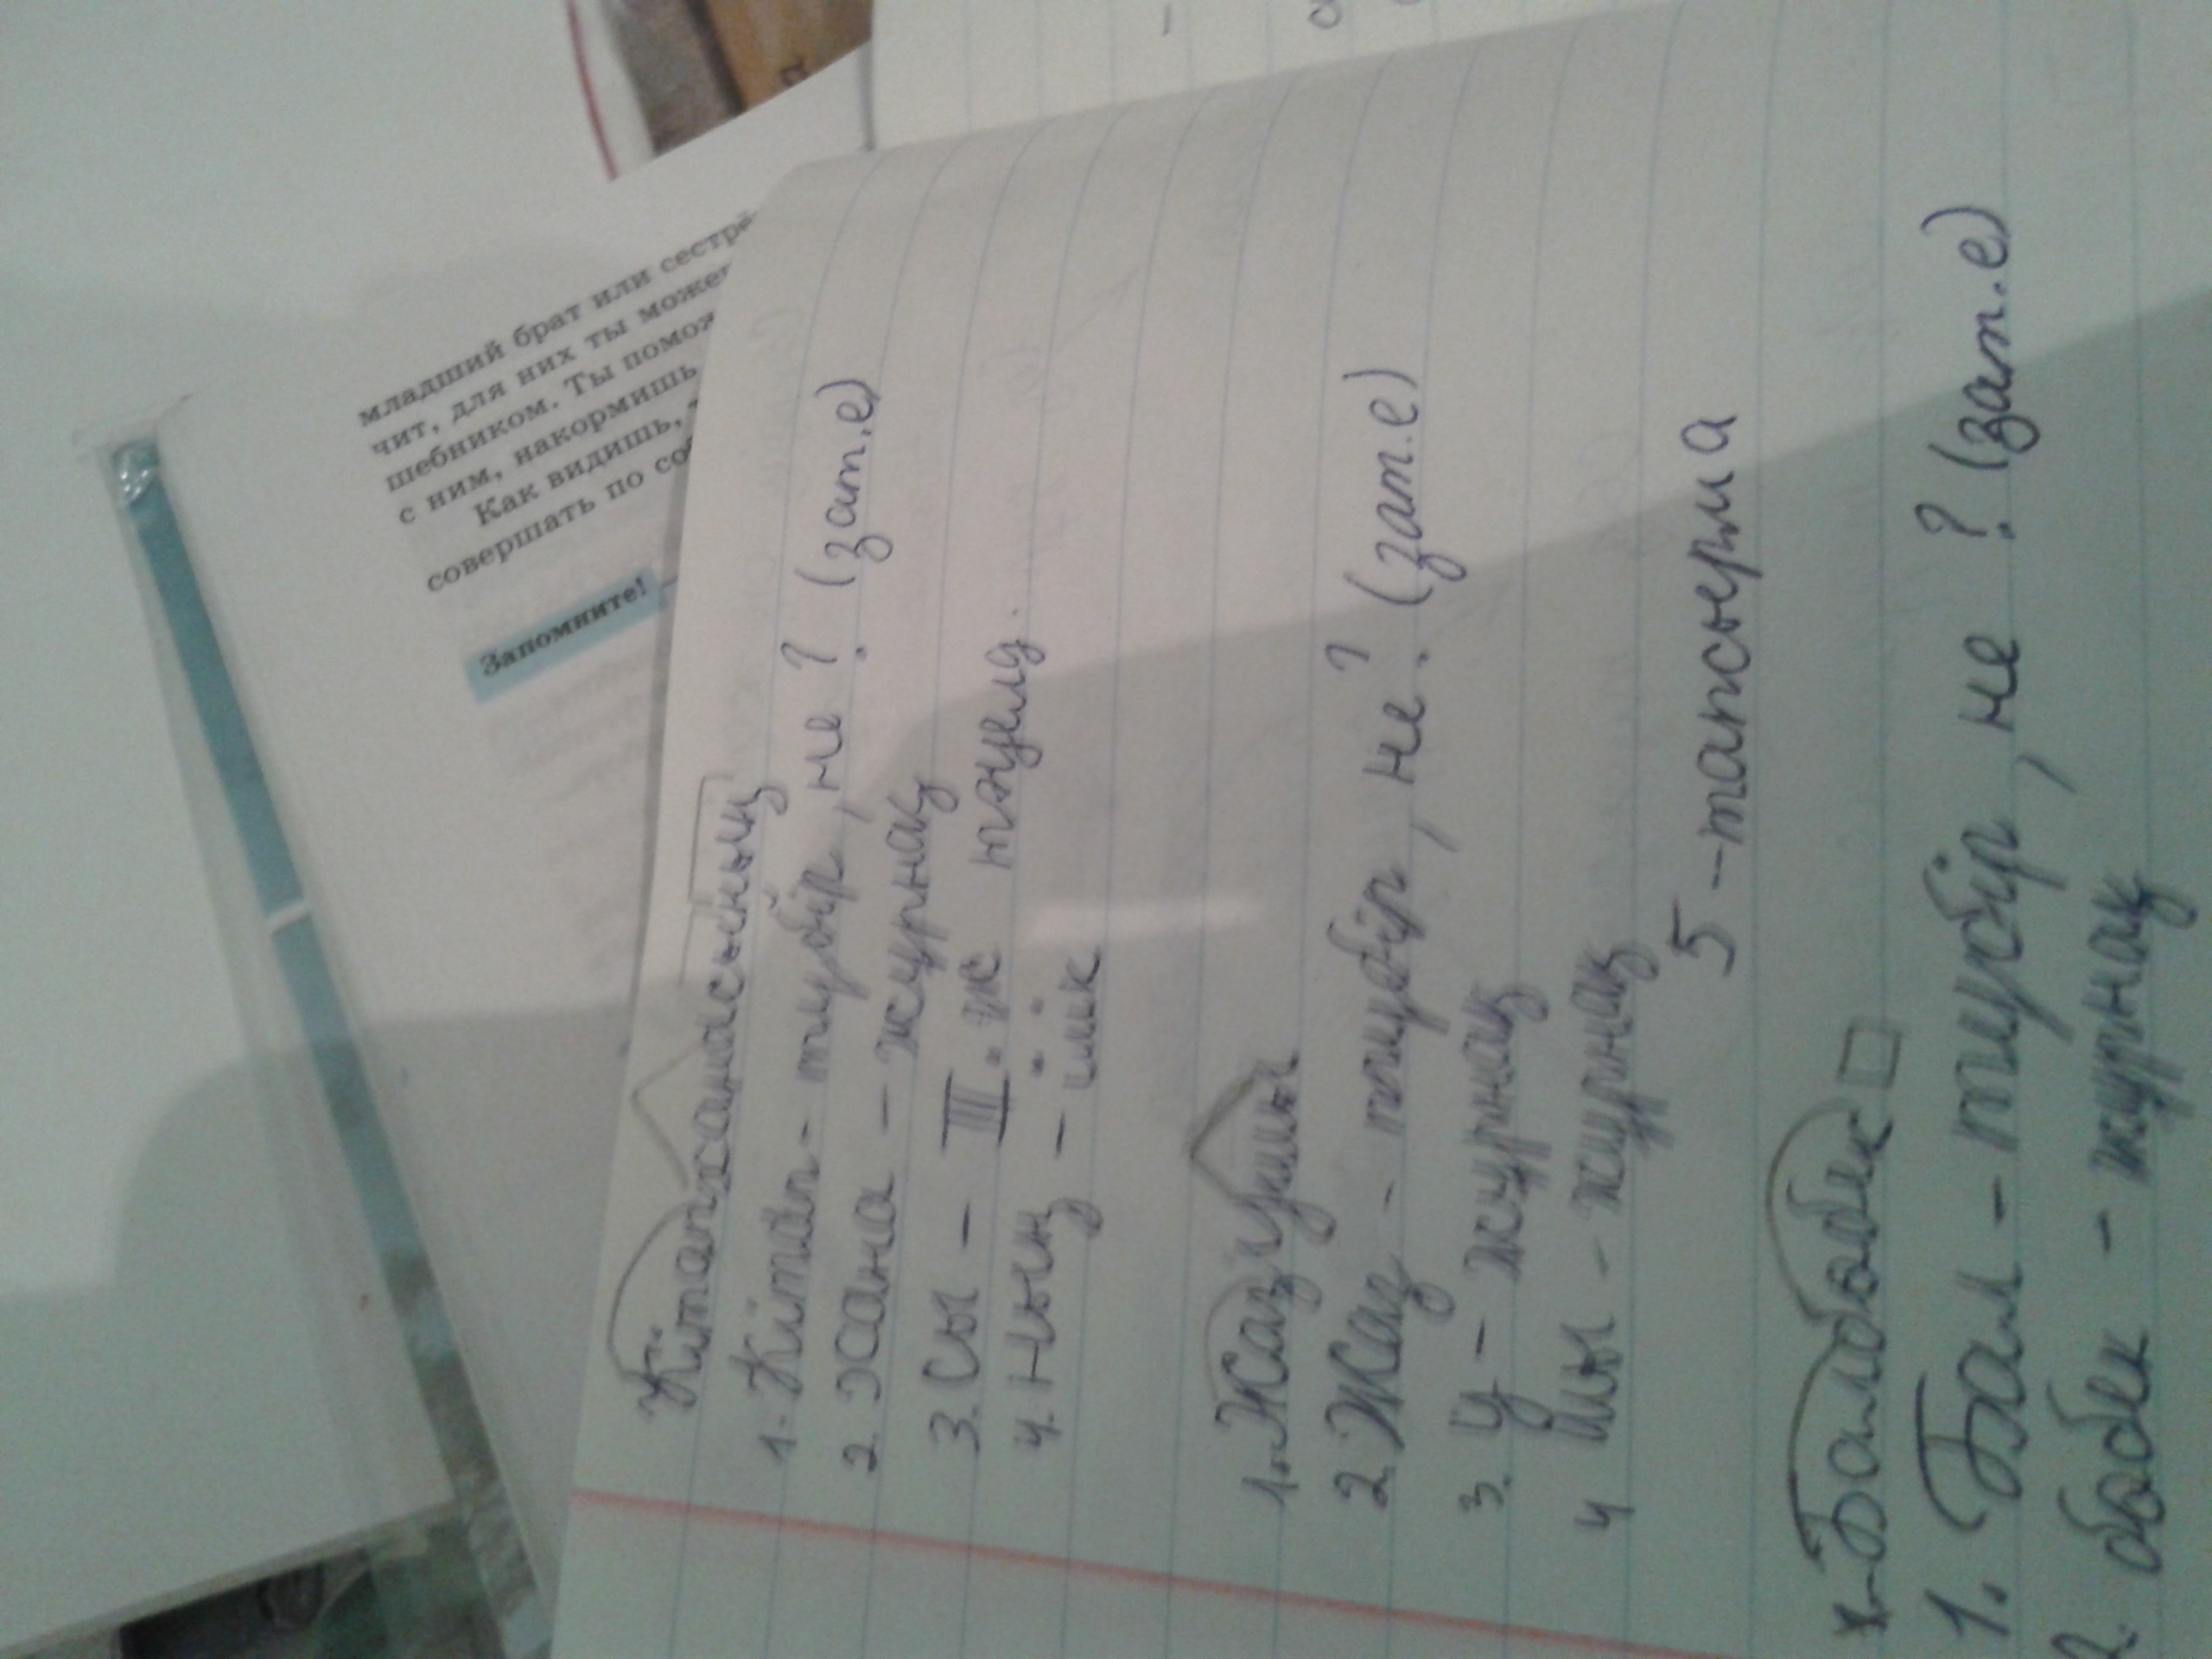 младший брат или сестрё
чит, для них ты може
шебником. Ты помож
с ним, накормишь
Как видишь,
совершать по со
Запомните!
Кітапханасының
1. Кітап - түбір, не? (зат.е)
2. Хана - жұрнақ
3. Сы - III. ж тәуелд.
4. Ның - ілік
1. Жазушы
2. Жаз - түбір, не? (зат.е)
3. У - жұрнақ
4 Шы - жұрнақ
5 - тапсырма
Балобөбек
1. Бал - түбір, не? (зат.е)
2. обөбек - жұрнақ